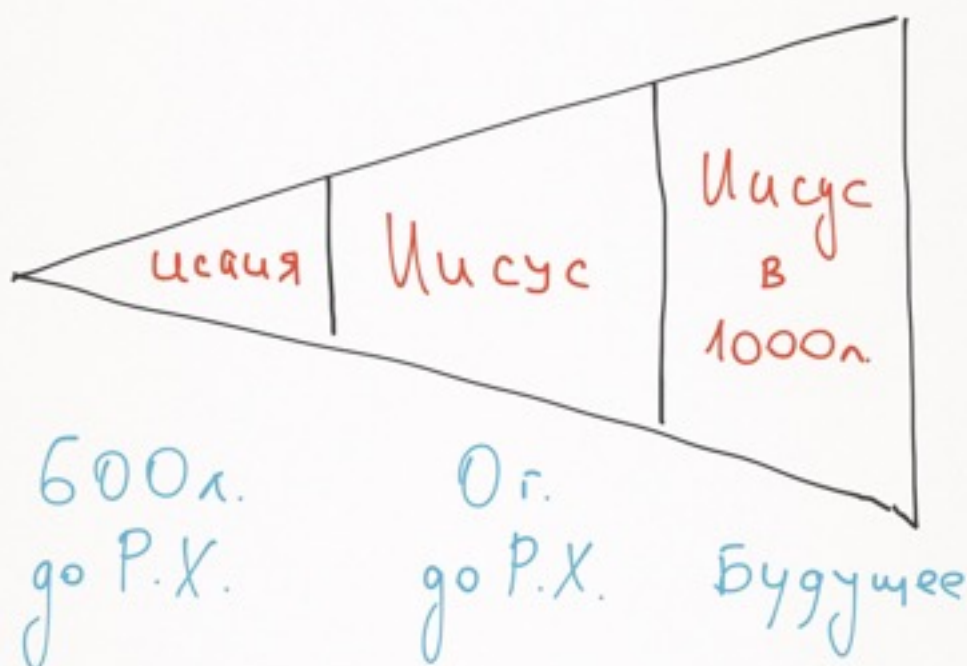 исаия
Иисус
Иисус
в
1000л.
600л.
до Р.Х.
0 г.
до Р.Х.
Будущее